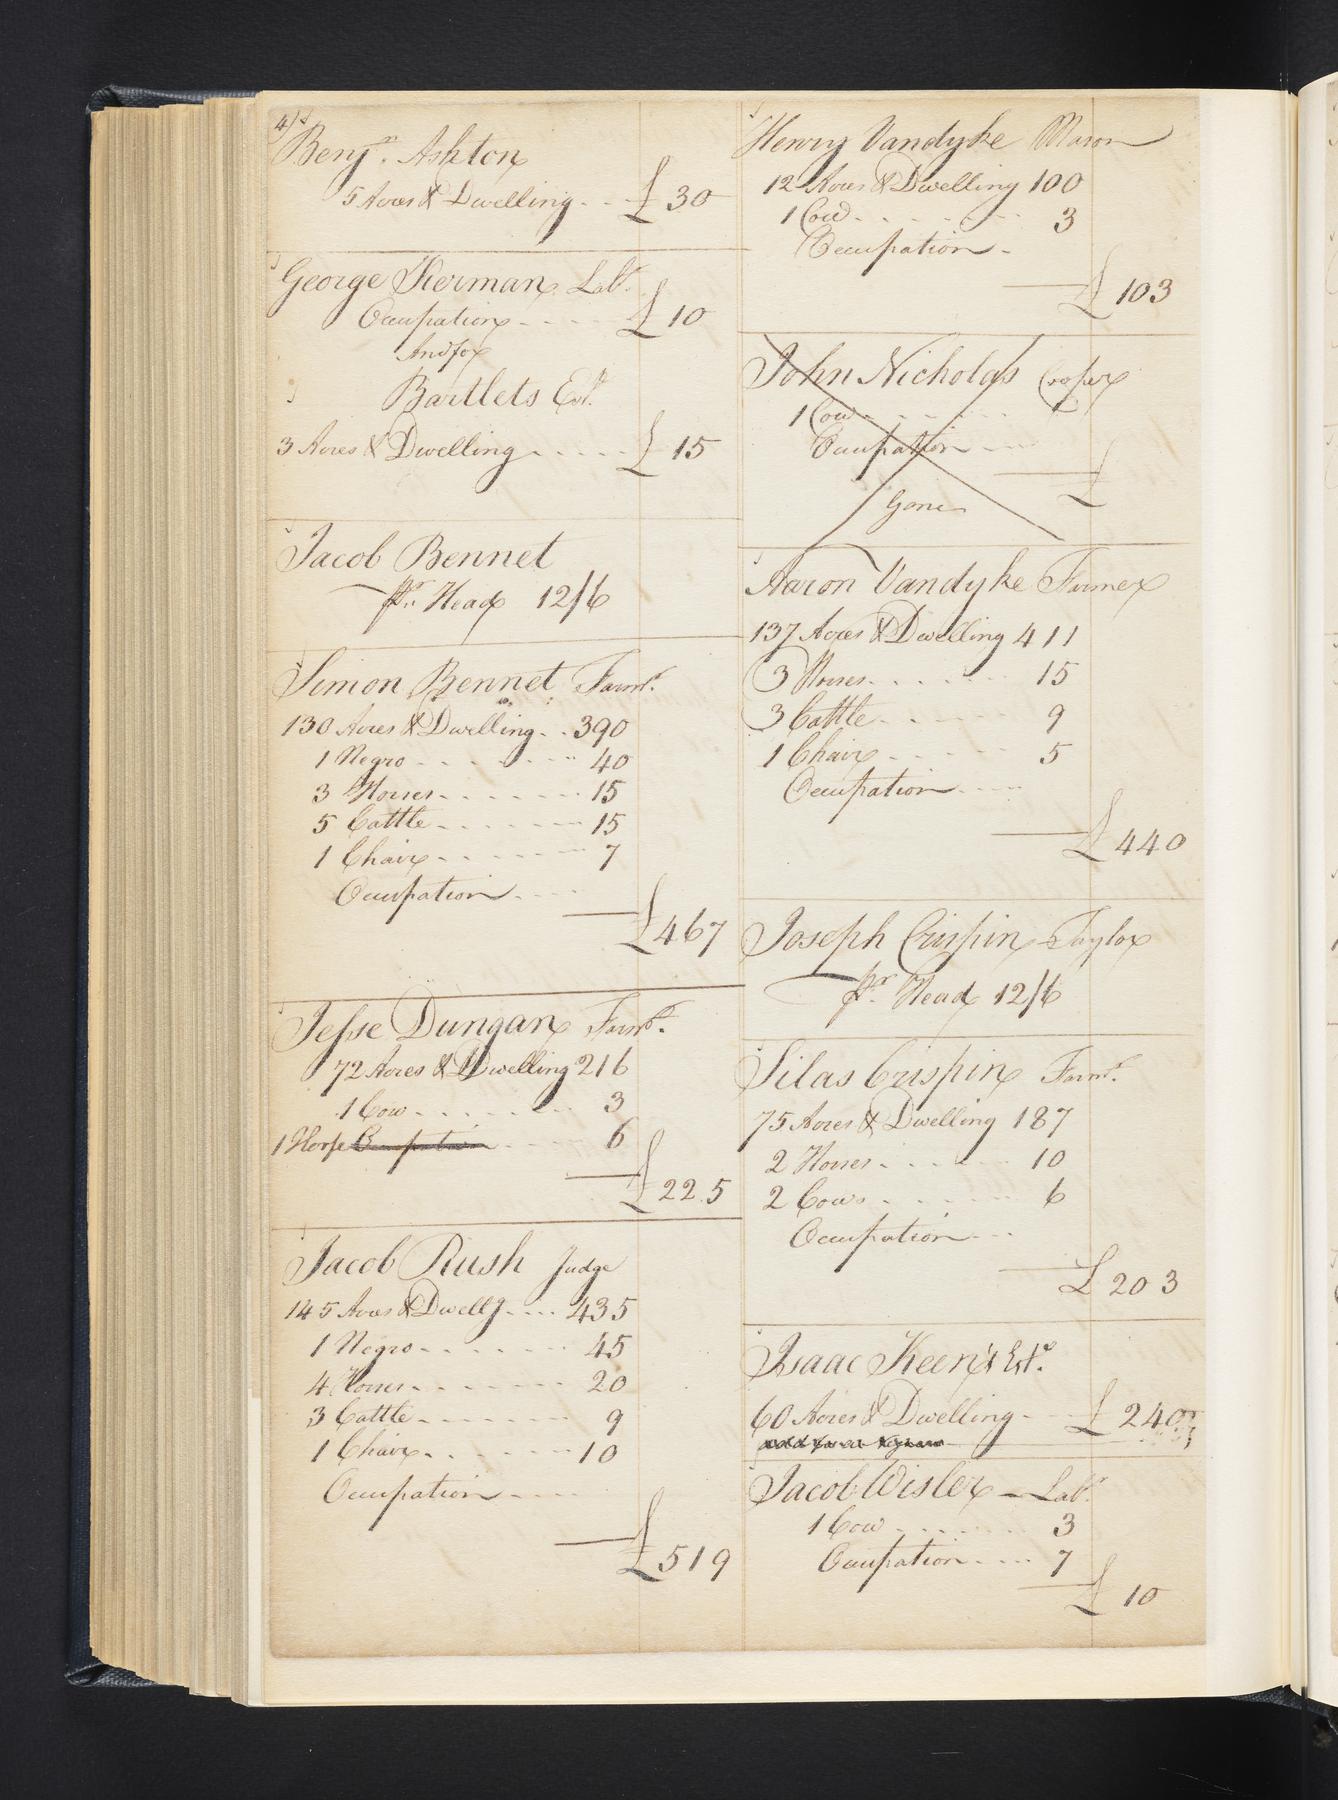 4
Benjn. Ashton
5 Acres & Dwelling £ 30
George Herman Labr.
Occupation £ 10
And for
Bartlets Est.
3 Acres & Dwelling £ 15
Jacob Bennet
pr. Head 12/6
Simon Bennet Farmr.
130 Acres & Dwelling 390
1 Negro 40
3 Horses 15
5 Cattle 15
1 Chair 7
Occupation
£467
Jesse Dungan Farmr.
72 Acres & Dwelling 216
1 Cow 3
1 Horse Occupation 6
£225
Jacob Rush Judge
145 Acres & Dwellg 435
1 Negro 45
4 Horses 20
3 Cattle 9
1 Chair 10
Occupation
£519
Henry Vandyke Mason
12 Acres & Dwelling 100
1 Cow 3
Occupation
£ 103
John Nicholas Cooper
1 Cow
Occupation
£
Gone
Aaron Vandyke Farmer
137 Acres & Dwelling 411
3 Horses 15
3 Cattle 9
1 Chair 5
Occupation
£440
Joseph Crispin Taylor
pr. Head 12/6
Silas Crispin Farmr.
75 Acres & Dwelling 187
2 Horses 10
2 Cows 6
Occupation
£ 203
Isaac Keen's Este.
60 Acres & Dwelling £ 240
Jacob Wisler Labr.
1 Cow 3
Occupation 7
£ 10